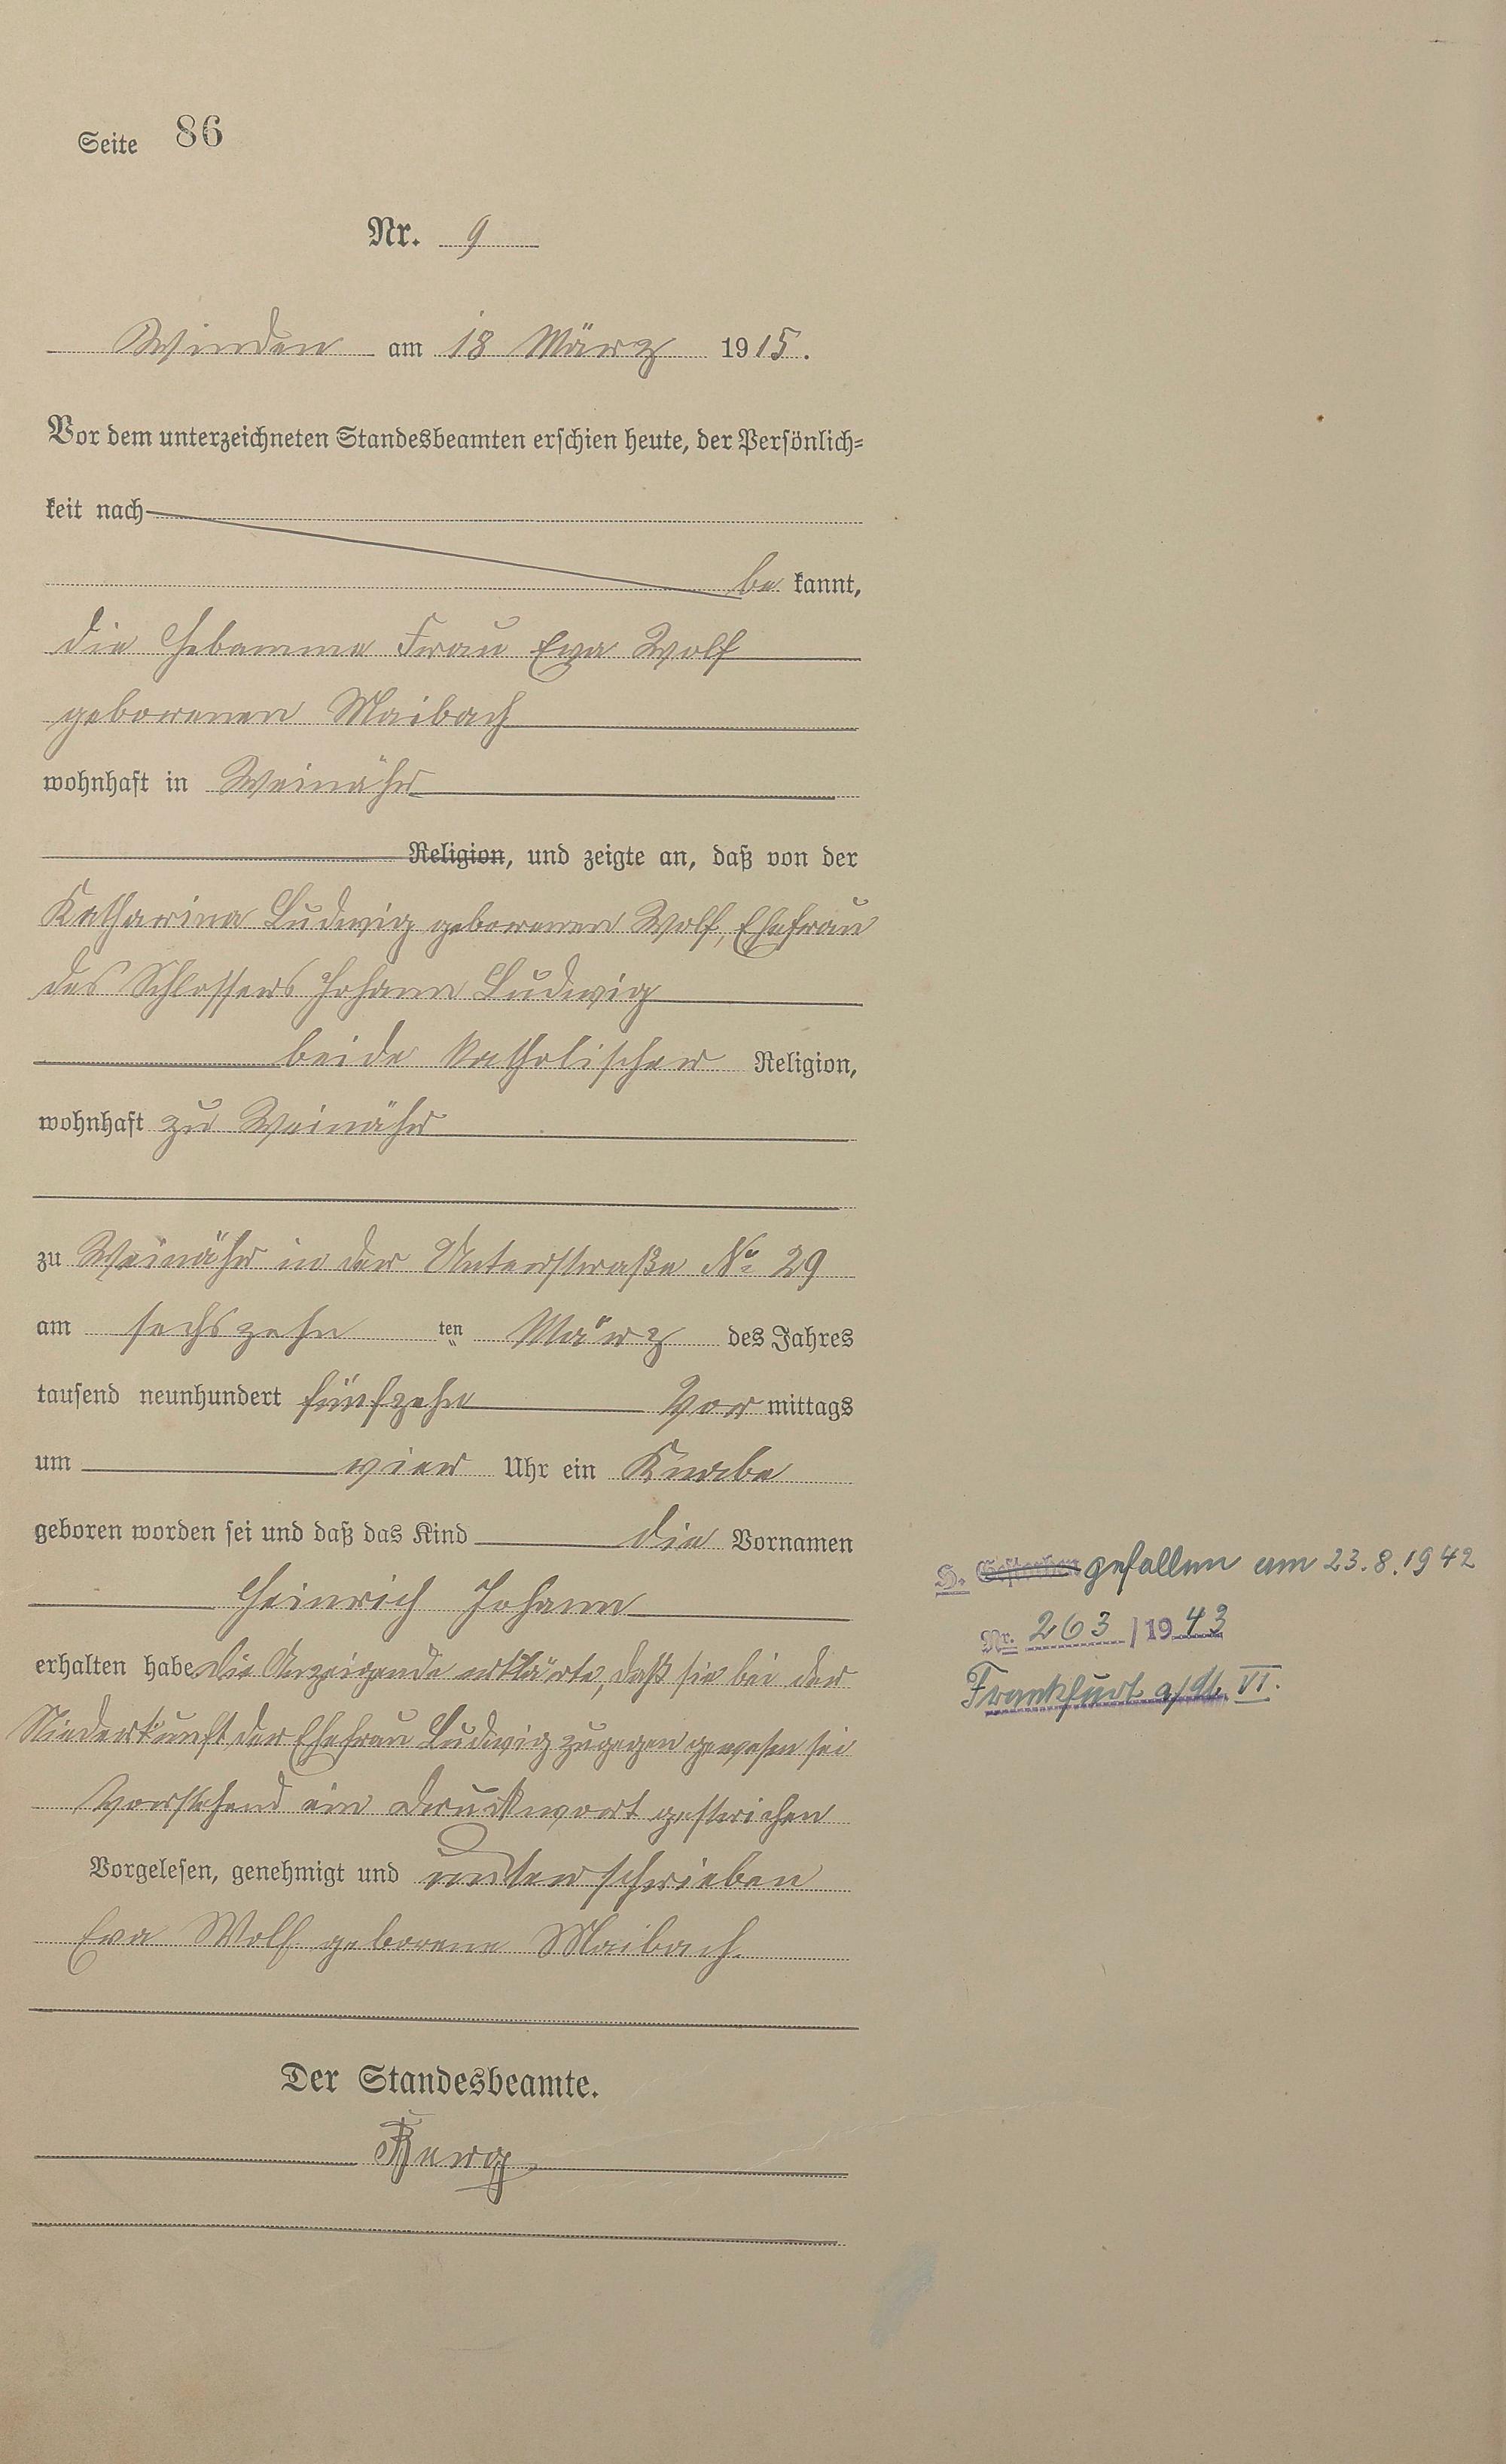 Seite 86
Nr. 9
Winden am 18 März 1915.
Vor dem unterzeichneten Standesbeamten erschien heute, der Persönlich=
keit nach
be kannt,
die Hebamme Frau Eva Wolf
geborenen Maibach
wohnhaft in Weinähr
Religion, und zeigte an, daß von der
Katharina Ludwig geborenen Wolf, Ehefrau
des Schlossers Johann Ludwig
beide katholischer Religion,
wohnhaft zu Weinähr
zu Weinähr in der Unterstraße No 29
am sechszehn ten März des Jahres
tausend neunhundert fünfzehn Vor mittags
um vier Uhr ein Knabe
geboren worden sei und daß das Kind die Vornamen
Heinrich Johann
erhalten habe die Anzeigende erklärte, daß sie bei der
Niederkunft der Ehefrau Ludwig zugegen gewesen sei
Vorstehend ein Druckwort gestrichen
Vorgelesen, genehmigt und unterschrieben
Eva Wolf geborene Maibach.
Der Standesbeamte.
S. Gestorben gefallen am 23.8.1942
Nr. 263/1943
Frankfurt a/M. VI.